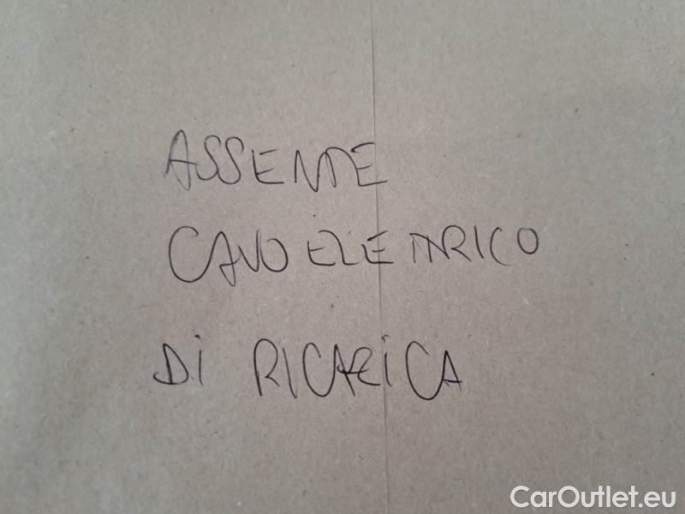 ASSENTE
CAVO ELETTRICO
DI RICARICA
CarOutlet.eu